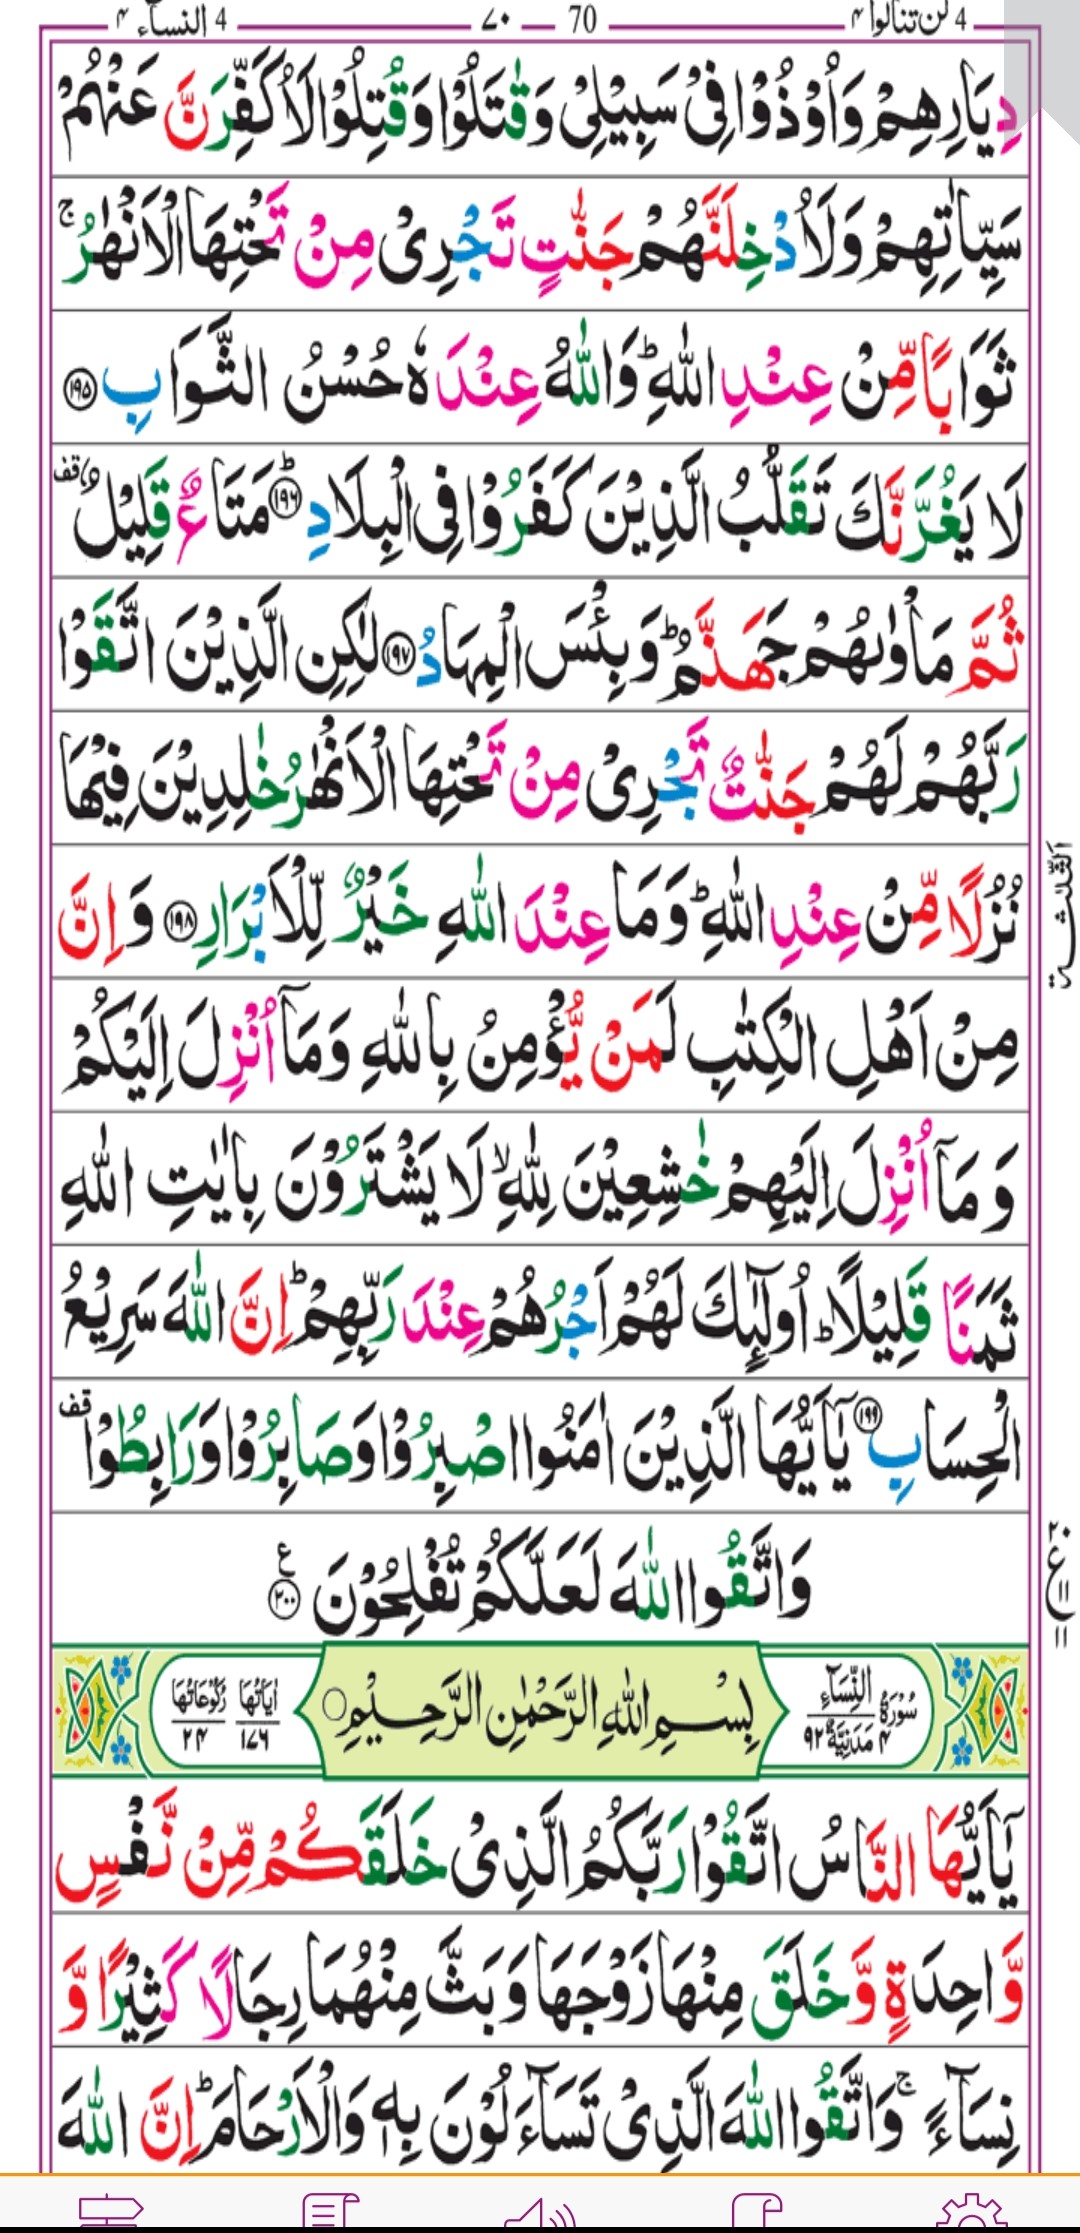 4 لن تنالوا ٤ — 70 — ٧٠ — 4 النساء ٤
دِيَارِهِمْ وَاُوْذُوْا فِيْ سَبِيْلِيْ وَقٰتَلُوْا وَقُتِلُوْا لَاُكَفِّرَنَّ عَنْهُمْ
سَيِّاٰتِهِمْ وَلَاُدْخِلَنَّهُمْ جَنّٰتٍ تَجْرِيْ مِنْ تَحْتِهَا الْاَنْهٰرُ ۚ
ثَوَابًا مِّنْ عِنْدِ اللّٰهِ ؕ وَاللّٰهُ عِنْدَهٗ حُسْنُ الثَّوَابِ ۝۱۹۵
لَا يَغُرَّنَّكَ تَقَلُّبُ الَّذِيْنَ كَفَرُوْا فِي الْبِلَادِ ؕ۝۱۹۶ مَتَاعٌ قَلِيْلٌ ۫قف
ثُمَّ مَاْوٰىهُمْ جَهَنَّمُ ؕ وَبِئْسَ الْمِهَادُ ۝۱۹۷ لٰكِنِ الَّذِيْنَ اتَّقَوْا
رَبَّهُمْ لَهُمْ جَنّٰتٌ تَجْرِيْ مِنْ تَحْتِهَا الْاَنْهٰرُ خٰلِدِيْنَ فِيْهَا
نُزُلًا مِّنْ عِنْدِ اللّٰهِ ؕ وَمَا عِنْدَ اللّٰهِ خَيْرٌ لِّلْاَبْرَارِ ۝۱۹۸ وَاِنَّ
الثلثة
مِنْ اَهْلِ الْكِتٰبِ لَمَنْ يُّؤْمِنُ بِاللّٰهِ وَمَاۤ اُنْزِلَ اِلَيْكُمْ
وَمَاۤ اُنْزِلَ اِلَيْهِمْ خٰشِعِيْنَ لِلّٰهِ ۙ لَا يَشْتَرُوْنَ بِاٰيٰتِ اللّٰهِ
ثَمَنًا قَلِيْلًا ؕ اُولٰٓئِكَ لَهُمْ اَجْرُهُمْ عِنْدَ رَبِّهِمْ ؕ اِنَّ اللّٰهَ سَرِيْعُ
الْحِسَابِ ۝۱۹۹ يٰۤاَيُّهَا الَّذِيْنَ اٰمَنُوا اصْبِرُوْا وَصَابِرُوْا وَرَابِطُوْا قف
وَاتَّقُوا اللّٰهَ لَعَلَّكُمْ تُفْلِحُوْنَ ۝۲۰۰ ع
۲۰ ع ۱۱ ۱۱
سُوْرَةُ النِّسَآءِ ۴ مَدَنِيَّةٌ ۹۲ بِسْمِ اللّٰهِ الرَّحْمٰنِ الرَّحِيْمِ ○ اٰيَاتُهَا ۱۷۶ رُكُوْعَاتُهَا ۲۴
يٰۤاَيُّهَا النَّاسُ اتَّقُوْا رَبَّكُمُ الَّذِيْ خَلَقَكُمْ مِّنْ نَّفْسٍ
وَّاحِدَةٍ وَّخَلَقَ مِنْهَا زَوْجَهَا وَبَثَّ مِنْهُمَا رِجَالًا كَثِيْرًا وَّ
نِسَآءً ۚ وَاتَّقُوا اللّٰهَ الَّذِيْ تَسَآءَلُوْنَ بِهٖ وَالْاَرْحَامَ ؕ اِنَّ اللّٰهَ